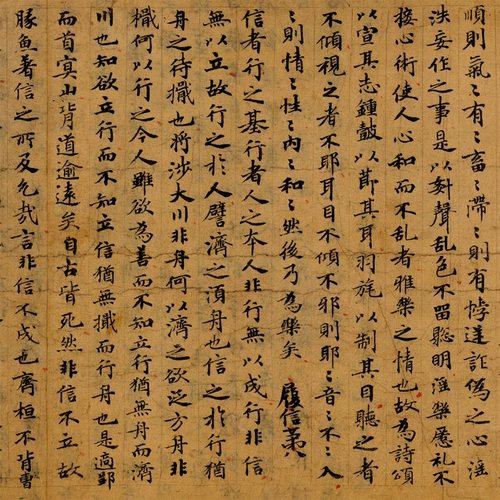 順則氣〻有〻畜〻帶〻則有悖逆詐偽之心淫
泆妄作之事是以姧聲乱色不留聡明淫樂慝礼不
接心術使人心和而不乱者雅樂之情也故為詩頌
以宣其志鍾皷以節其耳羽旄以制其目聽之者
不傾視之者不耶耳目不傾不邪則耶〻音〻不〻入
〻則情〻性〻内〻和〻然後乃為樂矣 履信第
信者行之基行者人之夲人非行無以成行非信
無以立故行之於人譬濟之湏舟也信之於行猶
舟之待檝也將涉大川非舟何以濟之欲泛方舟非
檝何以行之今人雖欲為善而不知立行猶無舟而濟
川也知欲立行而不知立信猶無檝而行舟也是適郢
而首冥山背道逾遠矣自古皆死然非信不立故
豚魚著信之所及允哉言非信不成也齊桓不背曹